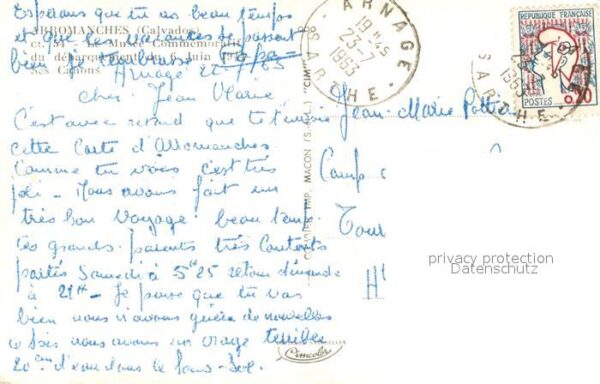 Esperons que tu as beau temps
et que les vacances se passent
bien
ARROMANCHES (Calvados)
Musée Commémoratif
du débarquement du 6 Juin
Ses Canons
Arnage
Cher Jean Marie
C'est avec retard que je t'envoie
cette Carte d'Arromanches
Comme tu vois c'est très
joli - Nous avons fait un
très bon voyage beau temps
Tes grands-parents très Contents
partis Samedi à 5h25 retour dimanche
à 21h - Je pense que tu vas
bien nous n'avons guère de nouvelles
ce soir nous avons un orage terrible
20 cm d'eau dans le Sous-Sol.
Jean-Marie
Camp
Tour
H
IMP. MACON (S.-&-L.) "CIM"
Cimcolor
ARNAGE
19H45
23-7
1963
SARTHE
REPUBLIQUE FRANÇAISE
POSTES 0,20
1963
SARTHE
privacy protection
Datenschutz